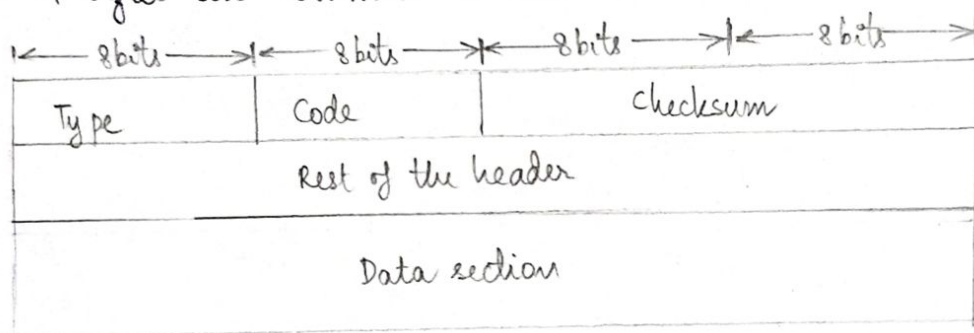 8bits 8bits 8bits 8bits
Type Code Checksum
Rest of the header
Data section